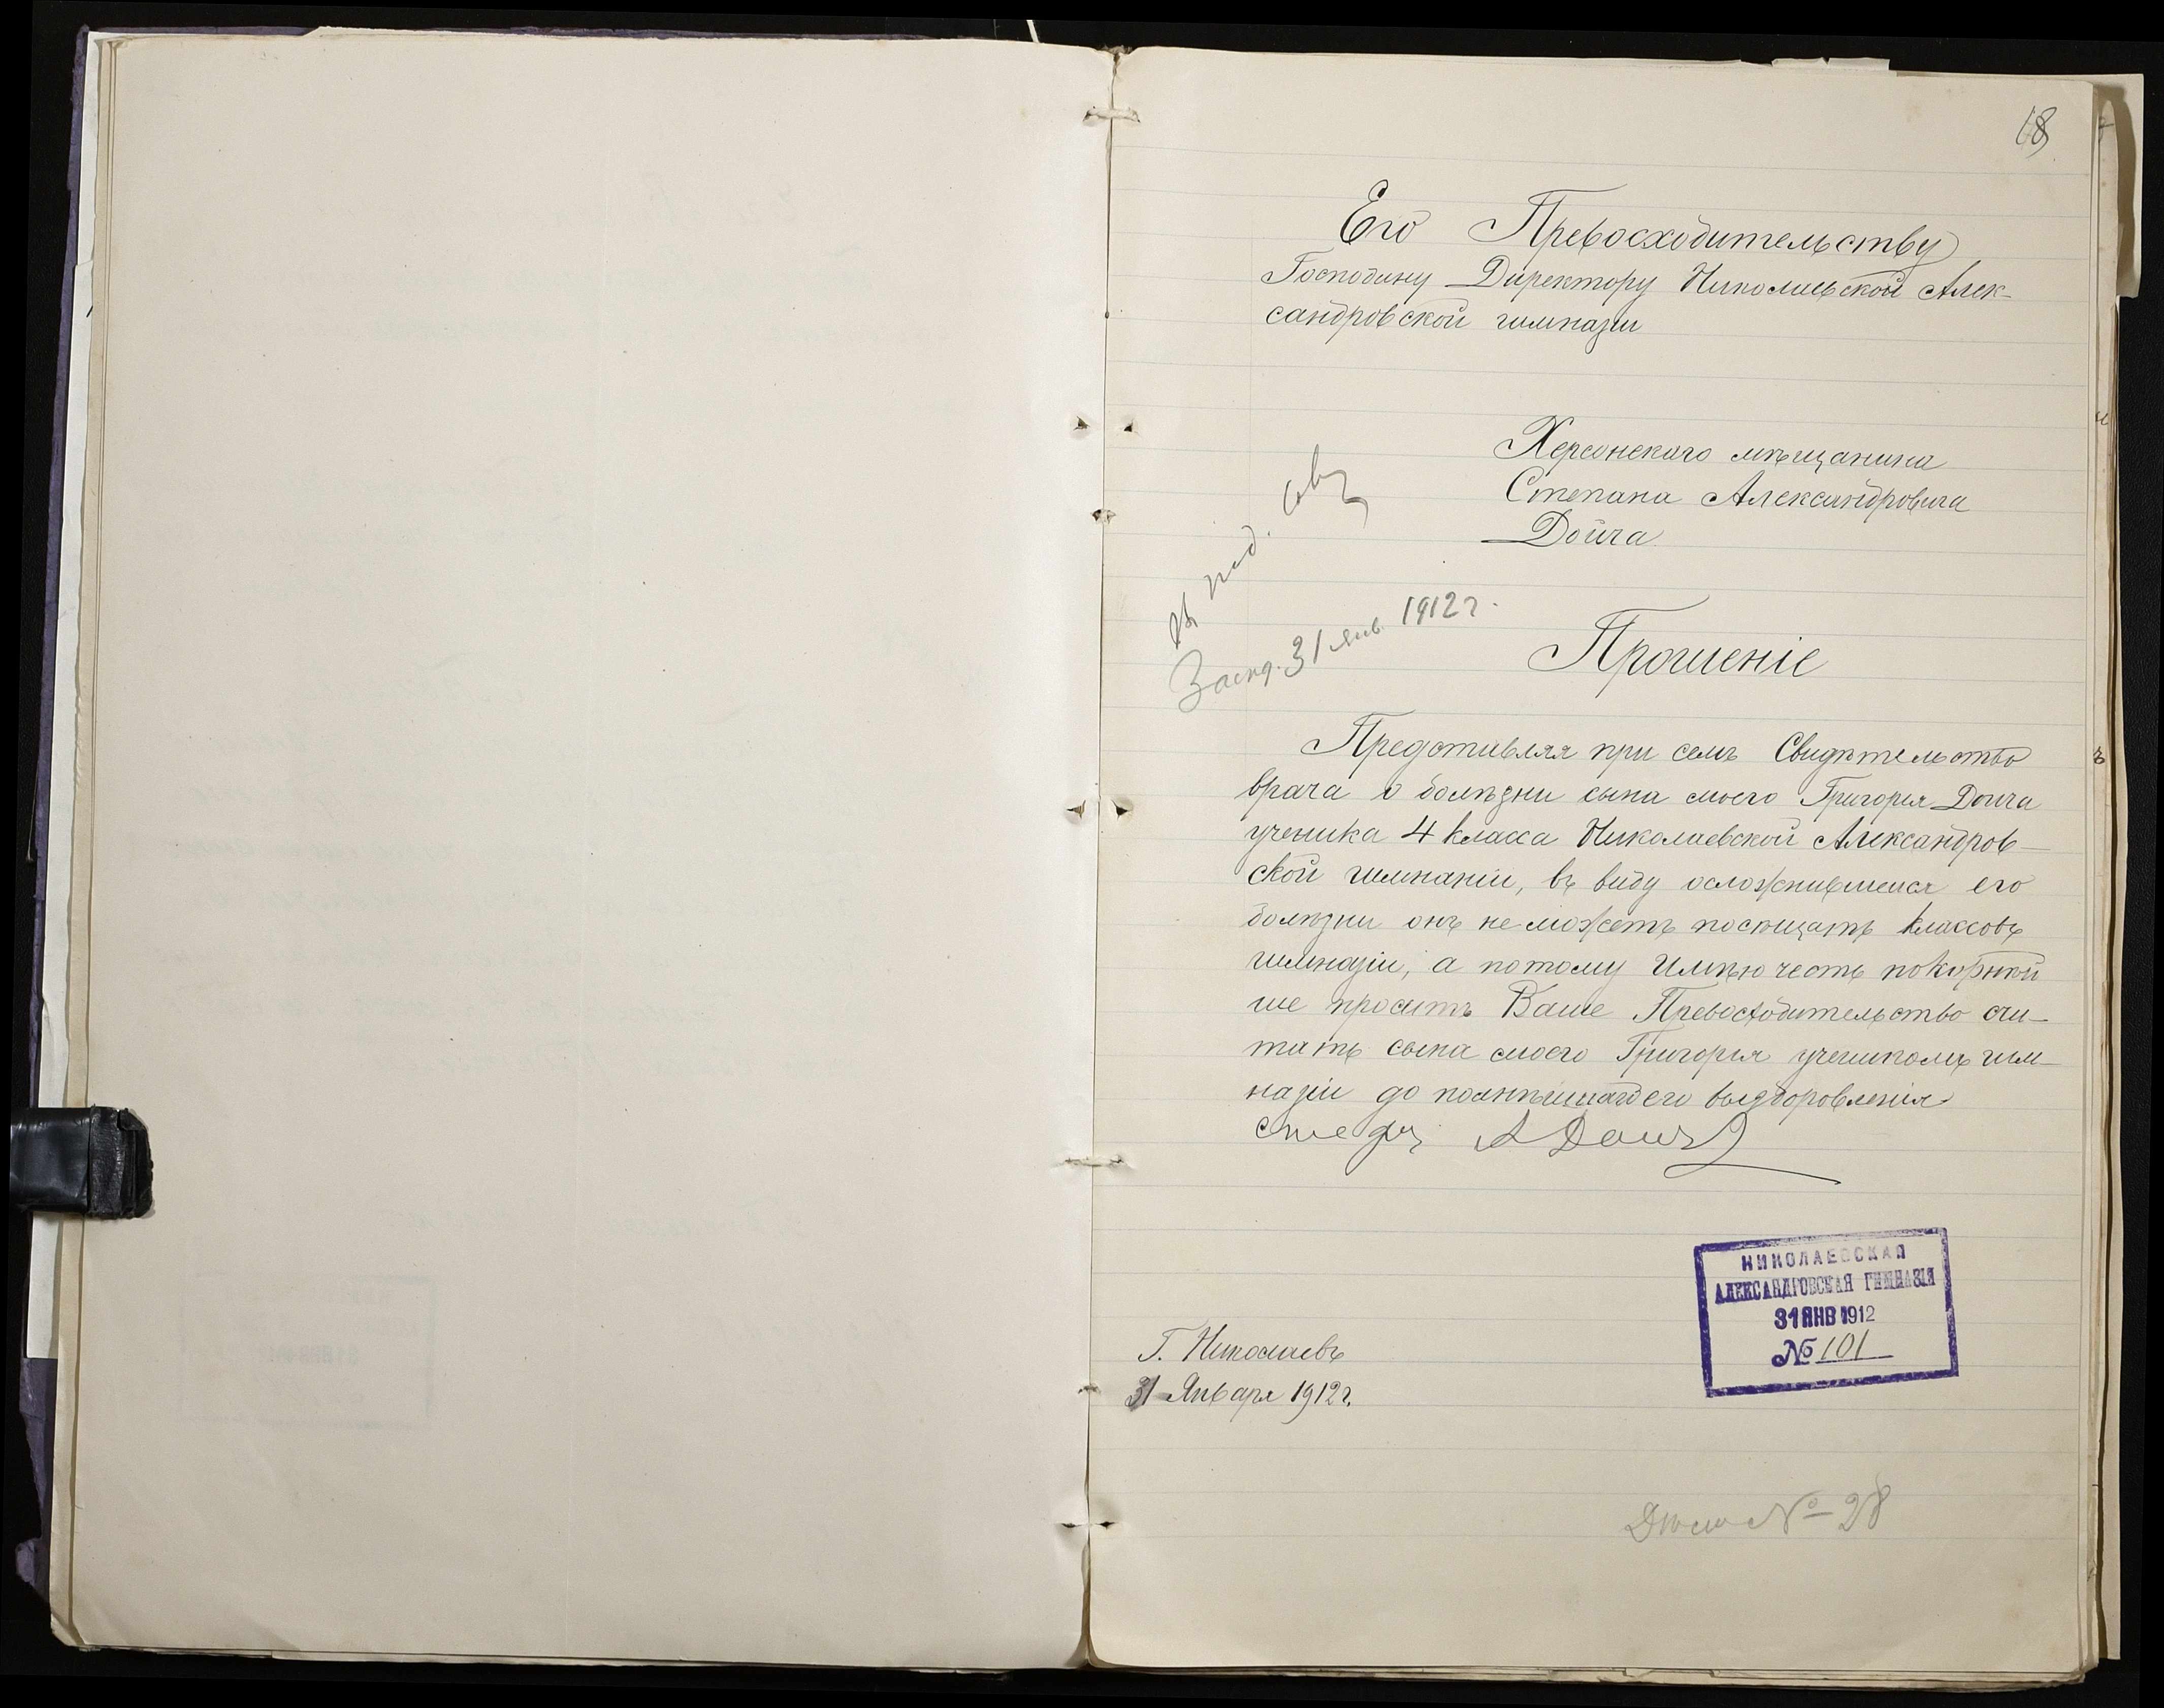 18
Его Превосходительству
Господину Директору Николаевской Алек-
сандровской гимназіи
Херсонскаго мѣщанина
Степана Александровича
Дойча
Въ пед. сов.
Засѣд. 31 янв. 1912 г.
Прошеніе
Представляя при семъ Свидѣтельство
врача о болѣзни сына моего Григорія Дойча
ученика 4 класса Николаевской Александров-
ской гимназіи, въ виду осложнившейся его
болѣзни онъ не можетъ посѣщать классовъ
гимназіи, а потому Имѣю честь покорнѣй
ше просить Ваше Превосходительство счи-
тать сына моего Григорія ученикомъ гим-
назіи до полнѣйшаго его выздоровленія
НИКОЛАЕВСКАЯ
АЛЕКСАНДРОВСКАЯ ГИМНАЗІЯ
31 ЯНВ 1912
№ 101
Г. Николаевъ
31 Января 1912 г.
Дѣло № 28